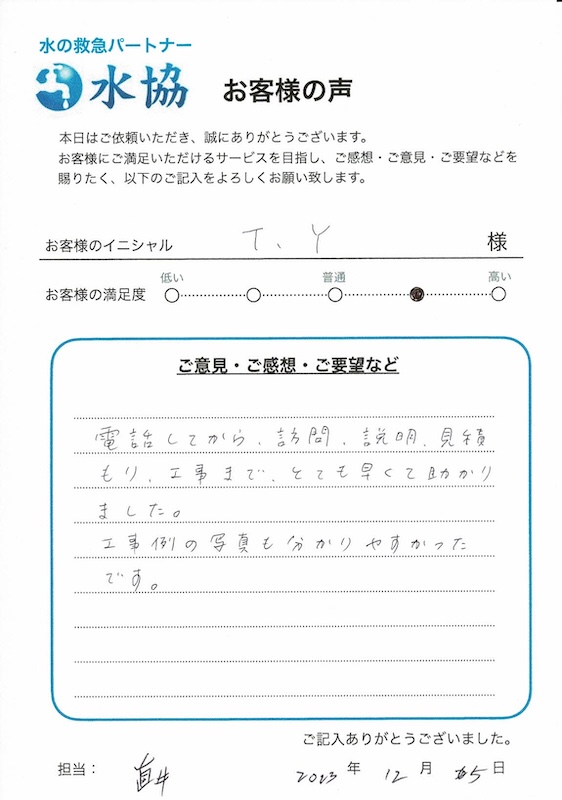 水の救急パートナー
水協 お客様の声
本日はご依頼いただき、誠にありがとうございます。
お客様にご満足いただけるサービスを目指し、ご感想・ご意見・ご要望などを
賜りたく、以下のご記入をよろしくお願い致します。
お客様のイニシャル T、Y 様
低い 普通 高い
お客様の満足度
ご意見・ご感想・ご要望など
電話してから、訪問、説明、見積
もり、工事まで、とても早くて助かり
ました。
工事例の写真も分かりやすかった
です。
ご記入ありがとうございました。
担当： 2023 年 12 月 5 日